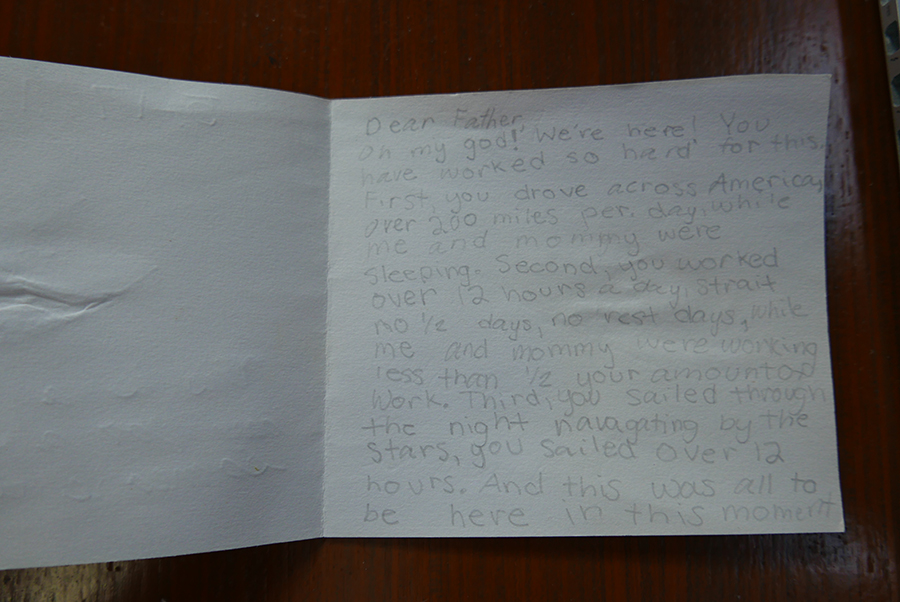 Dear Father
Oh my god! We're here! You
have worked so hard for this.
First, you drove across America,
over 200 miles per. day, while
me and mommy were
sleeping. Second, you worked
over 12 hours a day, strait
no ½ days, no rest days, while
me and mommy were working
less than ½ your amount of
work. Third, you sailed through
the night navagating by the
stars, you sailed over 12
hours. And this was all to
be here in this moment